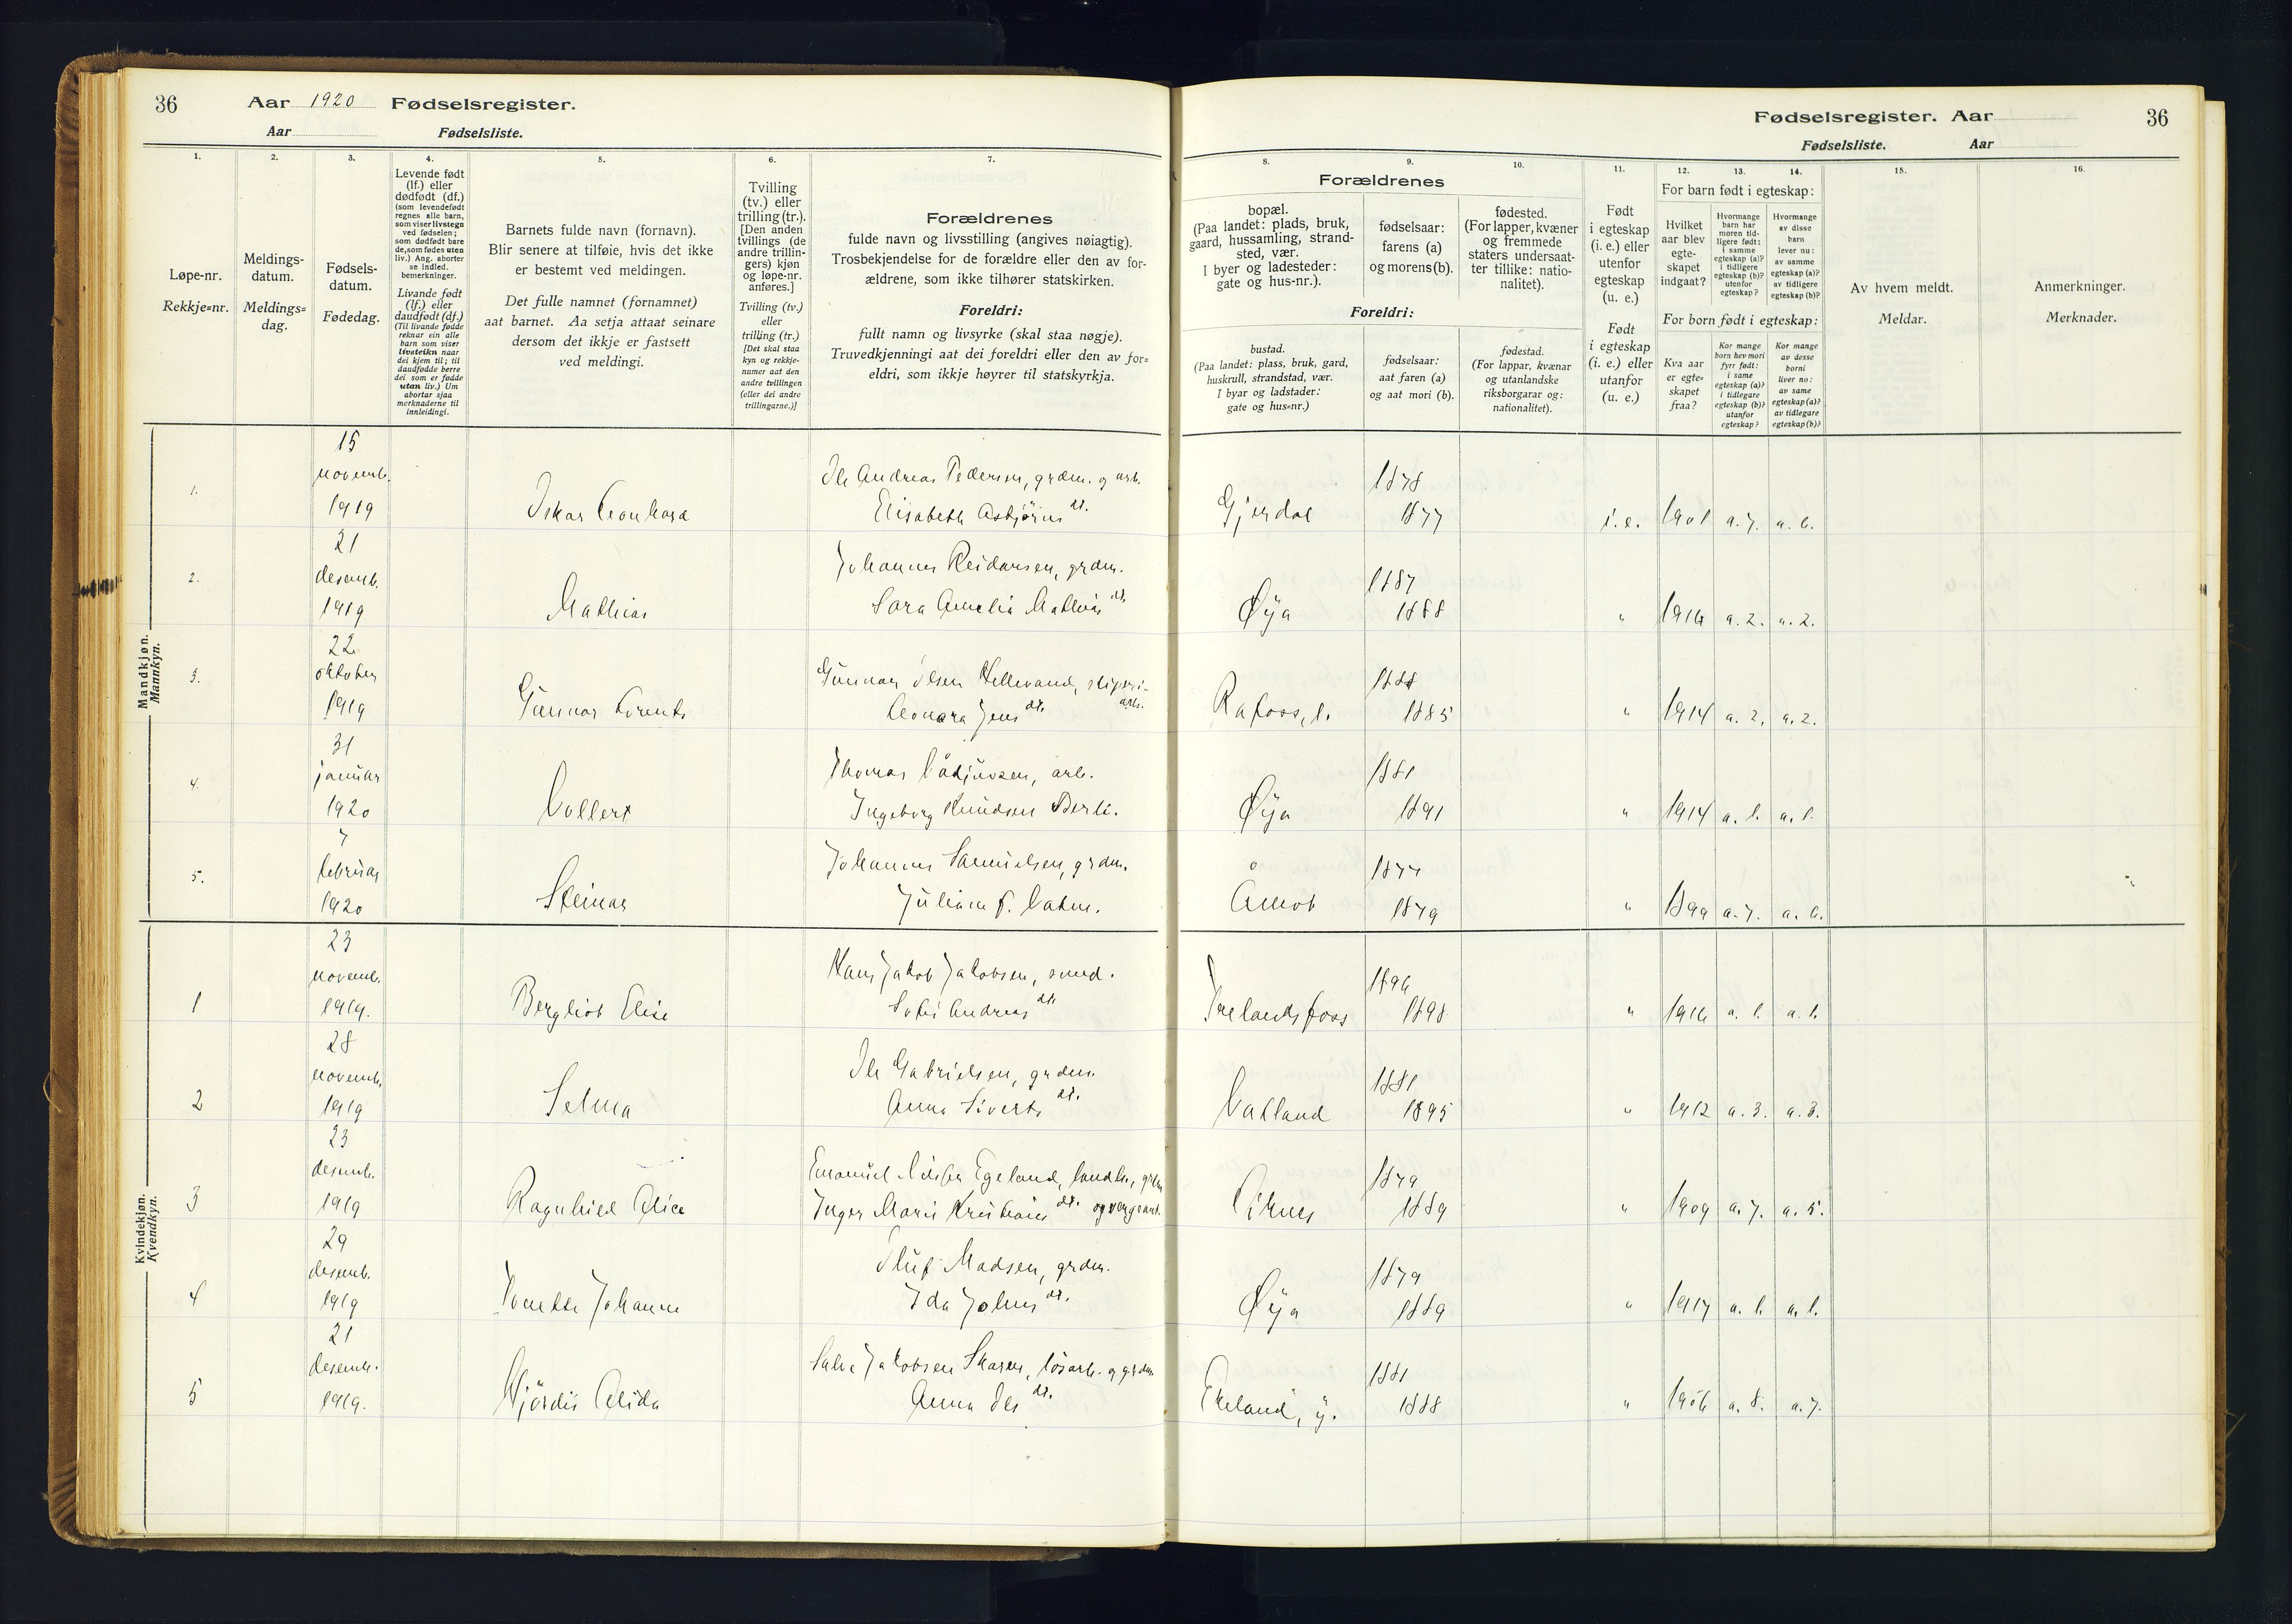 36 Aar 1920 Fødselsregister.
Aar Fødselsliste.
1. 2. 3. 4. 5. 6. 7.
Løpe-nr.
Rekkje=nr.
Meldings-
datum.
Meldings=
dag.
Fødsels-
datum.
Fødedag.
Levende født
(lf.) eller
dødfødt (df.)
(som levendefødt
regnes alle barn,
som viser livstegn
ved fødselen;
som dødfødt bare
de, som fødes uten
liv.) Ang. aborter
se indled.
bemerkninger.
Livande født
(lf.) eller
daudfødt (df.)
(Til livande fødde
reknar ein alle
barn som viser
livsteikn naar
dei kjem til; til
daudfødde berre
dei som er fødde
utan liv.) Um
abortar sjaa
merknaderne til
innleidingi.
Barnets fulde navn (fornavn).
Blir senere at tilføie, hvis det ikke
er bestemt ved meldingen.
Det fulle namnet (fornamnet)
aat barnet. Aa setja attaat seinare
dersom det ikkje er fastsett
ved meldingi.
Tvilling
(tv.) eller
trilling (tr.).
[Den anden
tvillings (de
andre trillin-
gers) kjøn
og løpe-nr.
anføres.]
Tvilling (tv.)
eller
trilling (tr.)
[Det skal staa
kyn og rekkje-
numer aat den
andre tvillingen
(eller dei andre
trillingarne.)]
Forældrenes
fulde navn og livsstilling (angives nøiagtig).
Trosbekjendelse for de forældre eller den av for-
ældrene, som ikke tilhører statskirken.
Foreldri:
fullt namn og livsyrke (skal staa nøgje).
Truvedkjenningi aat dei foreldri eller den av for=
eldri, som ikkje høyrer til statskyrkja.
Mandkjøn.
Mannkyn.
1. 15 novemb. 1919
Andreas Pedersen, grdm. og arb.
Elisabeth Asbjørns dt.
2. 21 desemb. 1919 Mathias
Johannes Reidarsen, grdm.
Sara Amelia Mathias dt.
3. 22 oktober 1919 Gunnar Lorents
Gunnar Olsen Hellevand, sliperi-
arb.
Leonora Jens dt.
4. 31 januar 1920 Vollert
Thomas arb.
Ingeborg Knudsen
5. 7 februar 1920 Steinar
Johannes Samuelsen, grdm.
Juliane f.
Kvindekjøn.
Kvendkyn.
1 23 novemb. 1919. Bergliot Elise
Hans Jakob Jakobsen, smed.
Sofie Andreas dt.
2 28 novemb. 1919 Selma
Ole Gabrielsen, grdm.
Anna Siverts dt.
3 23 desemb. 1919 Ragnhild Alice
Emanuel Nilsen Egeland, landh., grdm
Inger Marie Kristians dt.
4 29 desemb. 1919 Johanne
Oluf Madsen, grdm.
Ida Johns dt.
5 21 desemb. 1919. Hjørdis Alida
Salve Jakobsen Skaren, løsarb. og grdm
Anna Ols dt.
Fødselsregister. Aar 36
Fødselsliste. Aar
8. 9. 10. 11. 12. 13. 14. 15. 16.
Forældrenes
bopæl.
(Paa landet: plads, bruk,
gaard, hussamling, strand-
sted, vær.
I byer og ladesteder:
gate og hus-nr.).
fødselsaar:
farens (a)
og morens (b).
fødested.
(For lapper, kvæner
og fremmede
staters undersaat-
ter tillike: natio-
nalitet).
Foreldri:
bustad.
(Paa landet: plass, bruk, gard,
huskrull, strandstad, vær.
I byar og ladstader:
gate og hus=nr.)
fødselsaar:
aat faren (a)
og aat mori (b).
fødestad.
(For lappar, kvænar
og utanlandske
riksborgarar og:
nationalitet).
Født
i egteskap
(i. e.) eller
utenfor
egteskap
(u. e.)
Født
i egteskap
(i. e.) eller
utanfor
(u. e.)
For barn født i egteskap:
Hvilket
aar blev
egte-
skapet
indgaat?
Hvormange
barn har
moren tid-
ligere født:
i samme
egteskap (a)?
i tidligere
egteskap (b)?
utenfor
egteskap?
Hvormange
av disse
barn
lever nu:
av samme
egteskap (a)?
av tidligere
egteskap (b)?
For born født i egteskap:
Kva aar
er egte=
skapet
fraa?
Kor mange
born hev mori
fyrr født:
i same
egteskap (a)?
i tidlegare
egteskap (b)?
utanfor
egteskap?
Kor mange
av desse
borni
liver no:
av same
egteskap (a)?
av tidlegare
egteskap (b)?
Av hvem meldt.
Meldar.
Anmerkninger.
Merknader.
Gjerdal 1878 1877 i. e. 1901 a. 7. a. 6.
Øya 1887 1888 " 1916 a. 2. a. 2.
Rafoss, 1885 " 1914 a. 2. a. 2.
Øya 1881 1891 " 1914 a. 1. a. 1.
Åmot 1877 1879 " 1899 a. 7. a. 6.
Trelandsfoss 1896 1898 " 1916 a. 1. a. 1.
Vatland 1881 1895 " 1912 a. 3. a. 3.
1879 1889 " 1909 a. 7. a. 5.
Øya 1879 1889 " 1917 a. 1. a. 1.
Eteland, y. 1881 1888 " 1906 a. 8. a. 7.